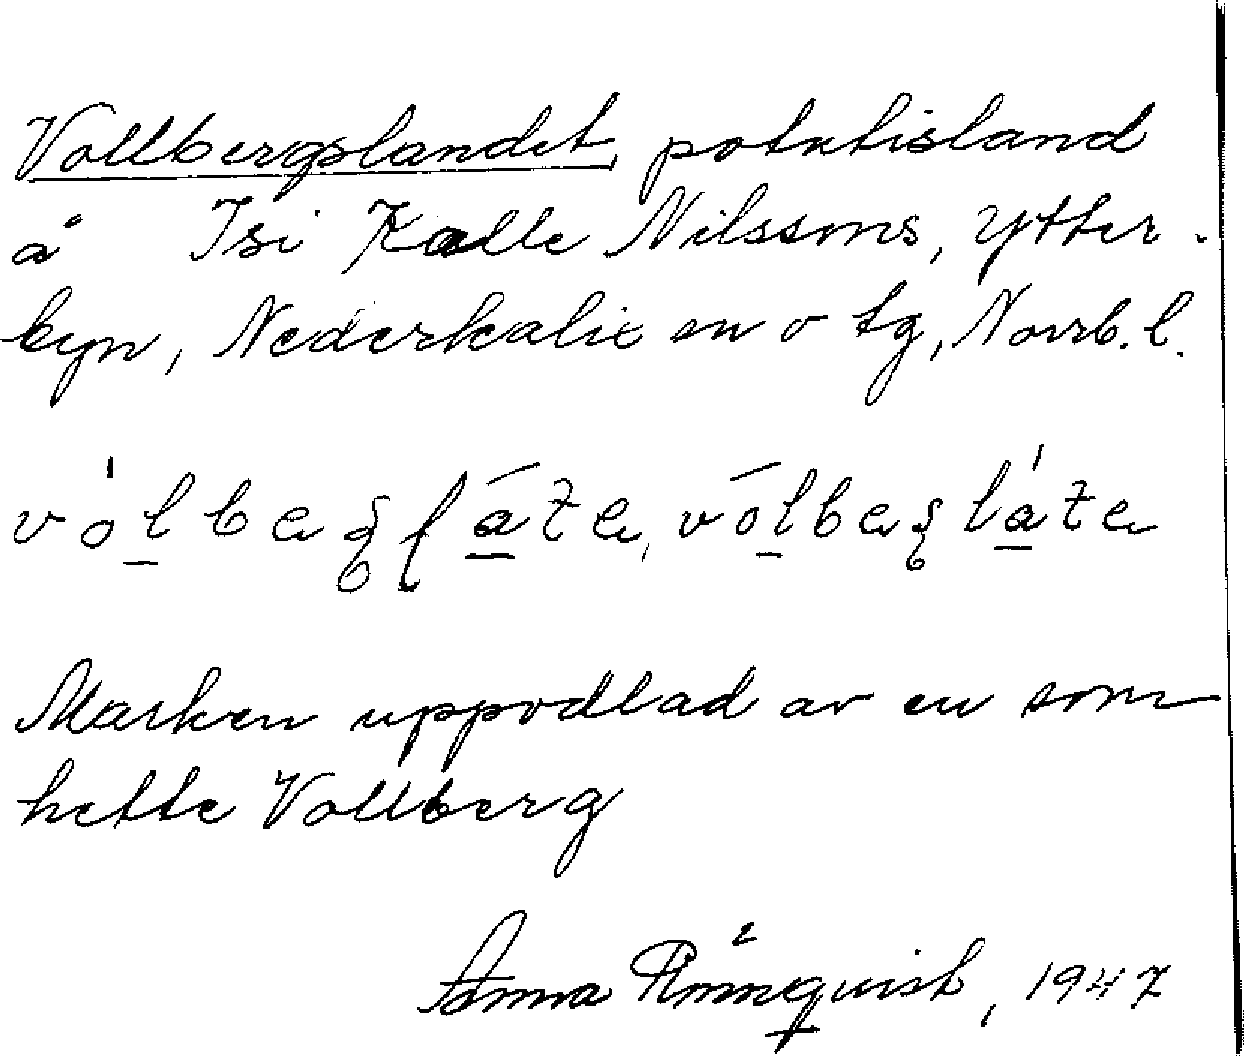 Vollbergslandet, potatisland
å Isi Kalle Nilssons, Ytter-
byn, Nederkalix sn o tg, Norrb. l.
Marken uppodlad av en som
hette Vollberg
Anna Rönnquist, 1947